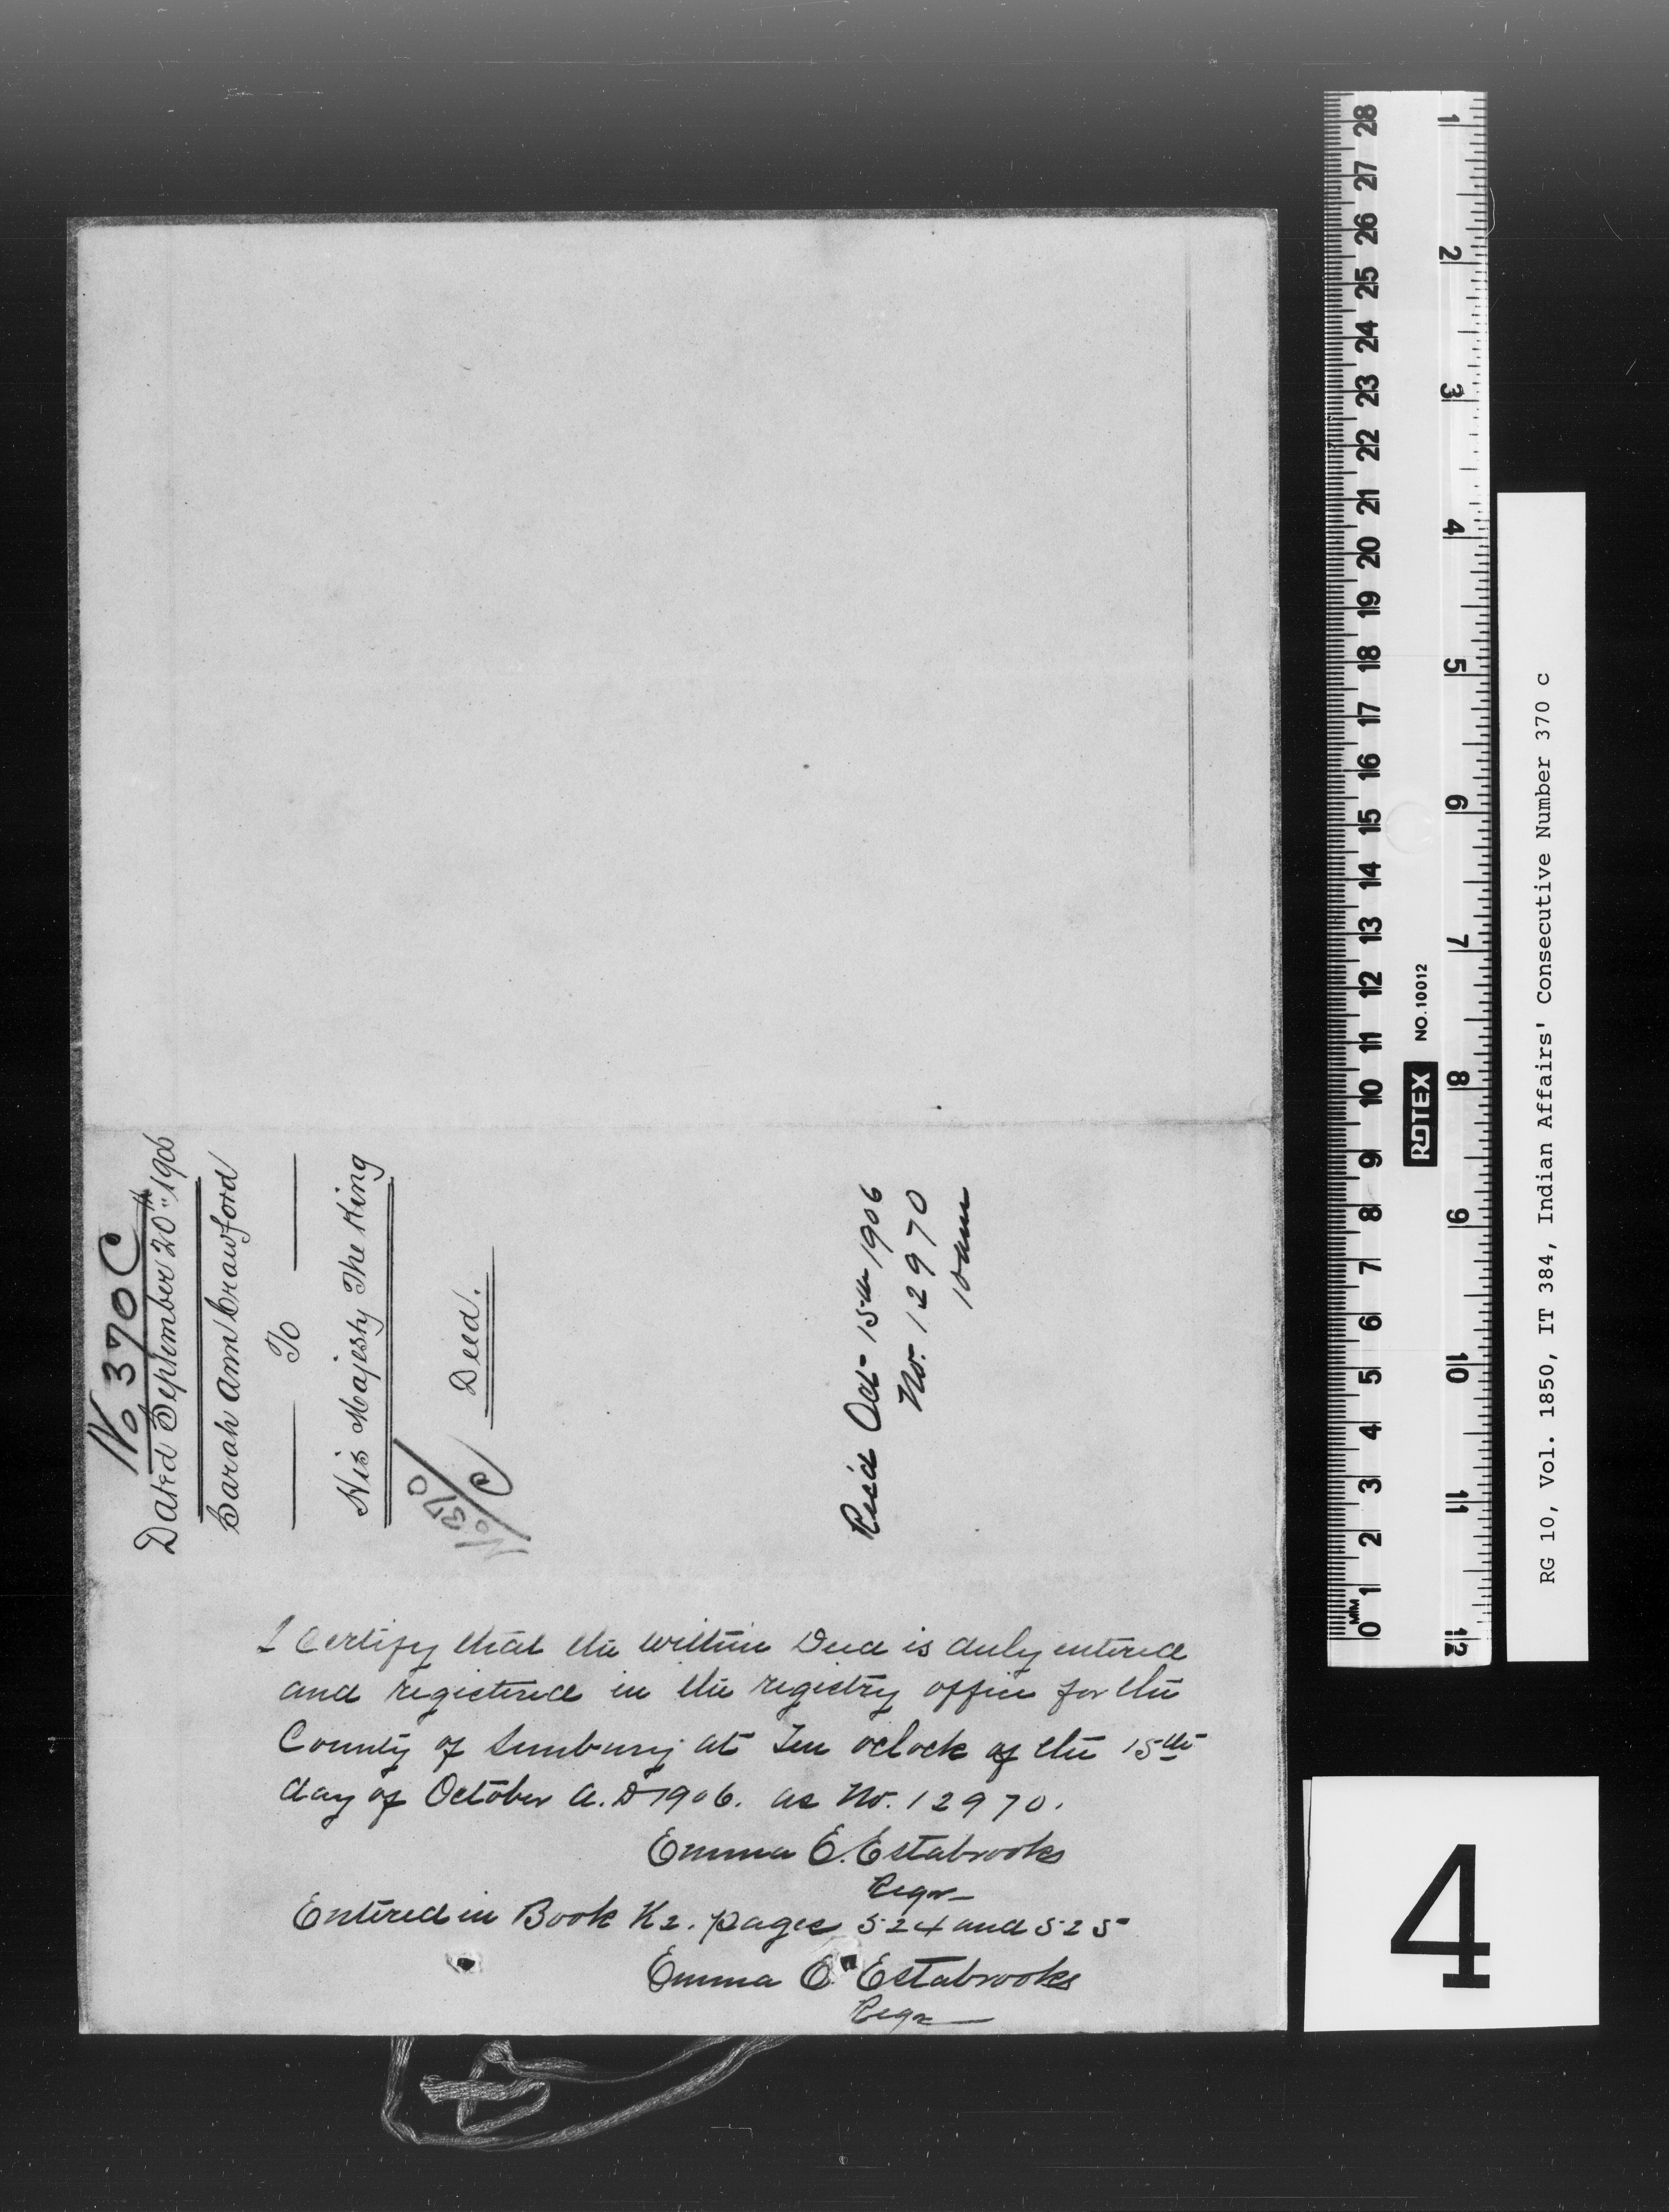 No 370 C
Dated September 20th 1906
Sarah Ann Crawford
To
His Majesty The King
Deed.
No 370
C
Rec'd Oct 15th 1906
No. 12970
10 am
I Certify that the within Deed is duly entered
and registered in the registry office for the
County of Sunbury at Ten oclock of the 15th
day of October A.D 1906. as No. 12970.
Emma E. Estabrooks
Regr
Entered in Book K2. pages 524 and 525
Emma E Estabrooks
Regr
28 27 26 25 24 23 22 21 20 19 18 17 16 15 14 13 12 11 10 9 8 7 6 5 4 3 2 1 0
MM
NO. 10012
ROTEX
1 2 3 4 5 6 7 8 9 10 11 12
RG 10, Vol. 1850, IT 384, Indian Affairs' Consecutive Number 370 c
4